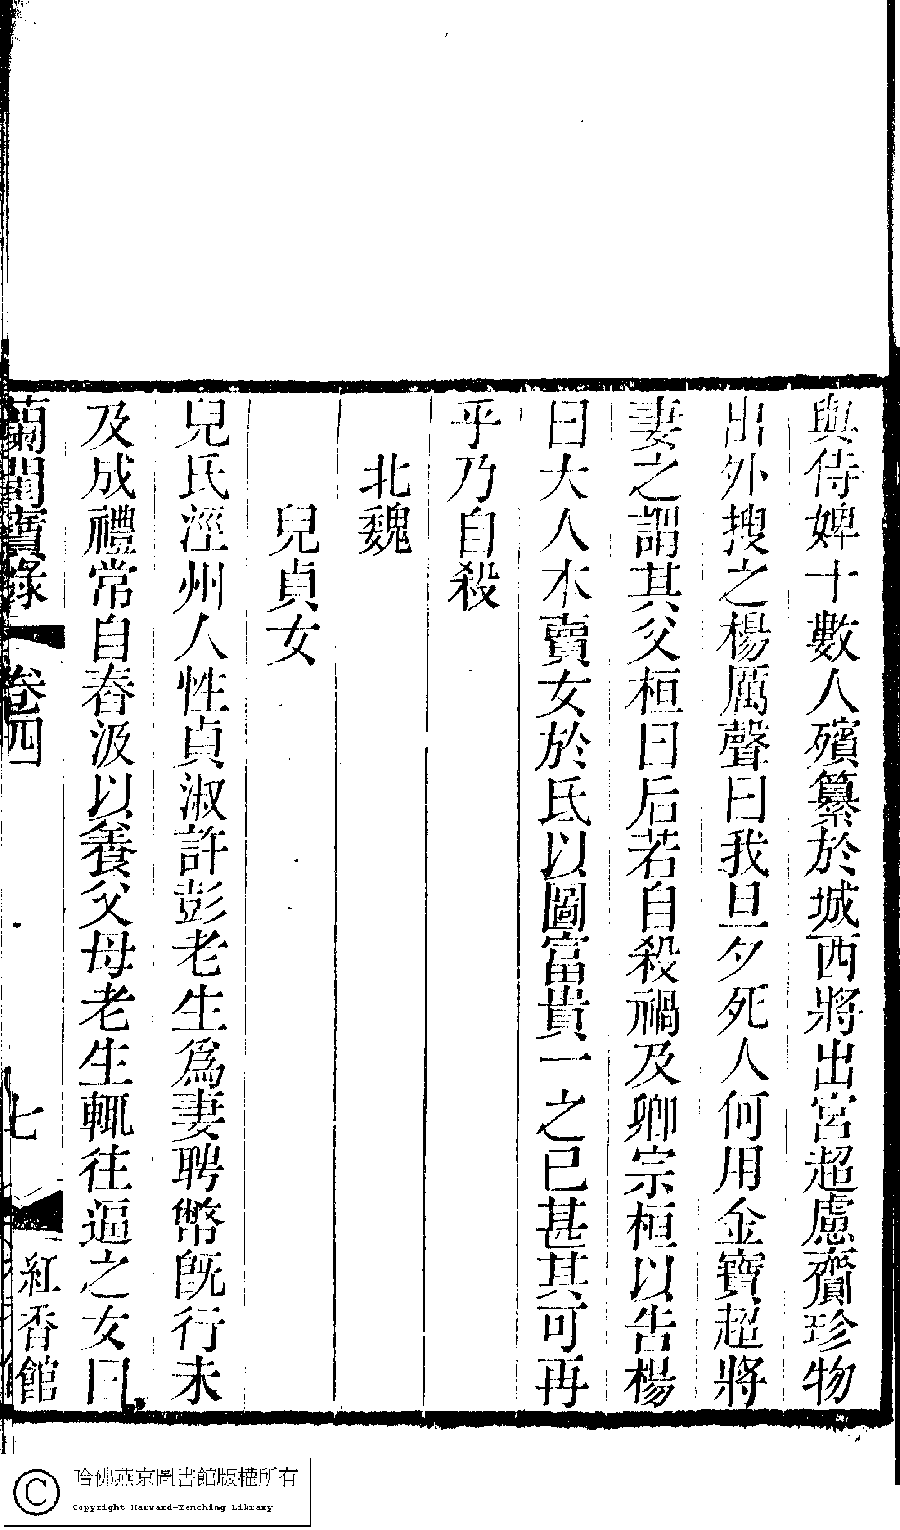 與侍婢十數人殯纂於城西將出宮超慮齎珍物
出外搜之楊厲聲曰我旦夕死人何用金寶超將
妻之謂其父桓曰后若自殺禍及卿宗桓以告楊
曰大人本賣女於氐以圖富貴一之已甚其可再
乎乃自殺
北魏
兒貞女
兒氏涇州人性貞淑許彭老生爲妻聘幣旣行未
及成禮常自舂汲以養父母老生輒往逼之女曰
蘭閨寶錄 卷四 七 紅香館
哈佛燕京圖書館版權所有
Copyright Harvard-Yenching Library